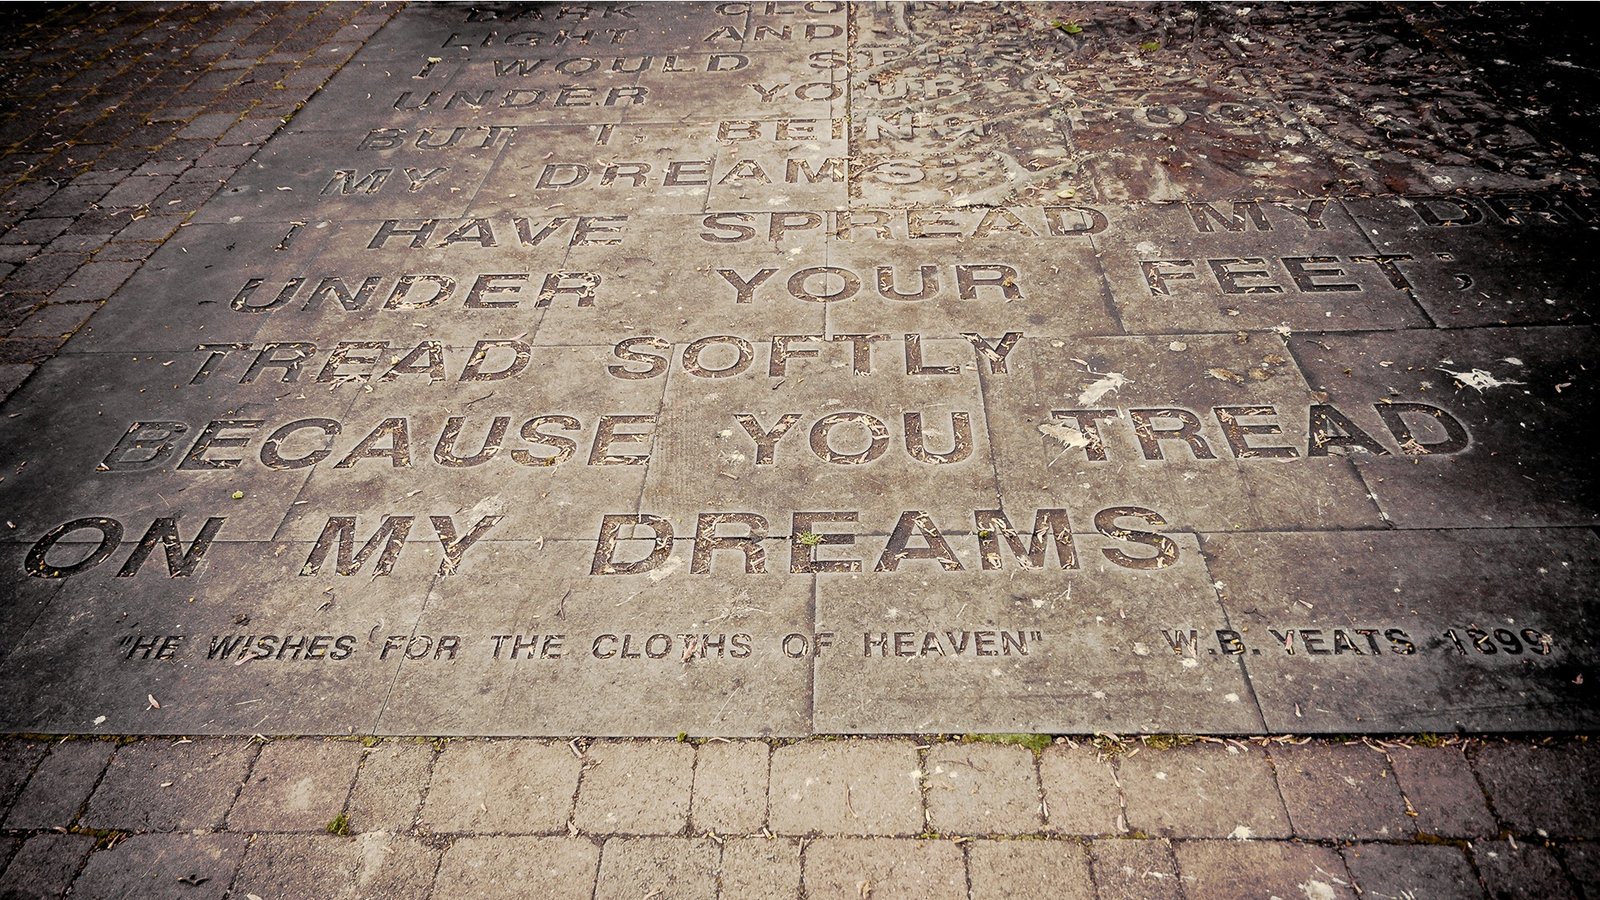 DARK CLOTHS
LIGHT AND
I WOULD SPREAD
UNDER YOUR
BUT I, BEING POOR
MY DREAMS;
I HAVE SPREAD MY DRE
UNDER YOUR FEET;
TREAD SOFTLY
BECAUSE YOU TREAD
ON MY DREAMS
"HE WISHES FOR THE CLOTHS OF HEAVEN" W.B. YEATS 1899